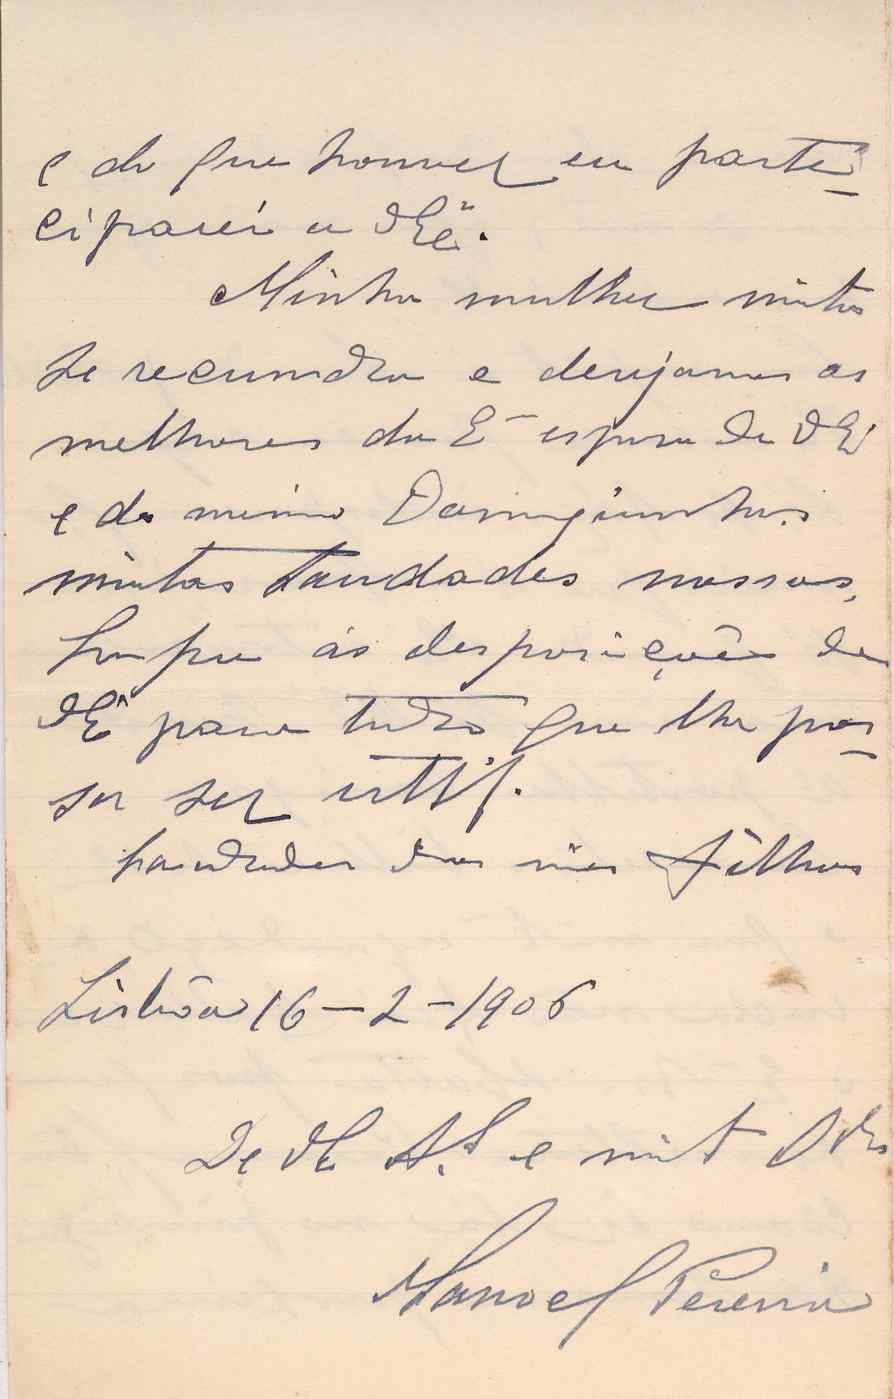 e do que houver eu parte-
ciparei a VEx.ª
Minha mulher muito
se recumdra e desejamos as
melhoras da E.ma espoza de VEª
e do menino Dominguinhos
muitas saudades nossas,
sempre ás desposições de
VEª para tudo que lhe pos-
sa ser util.
Saudades dos meus filhos
Lisbôa 16-2-1906
De VE A.S e muit
Manoel Pereira